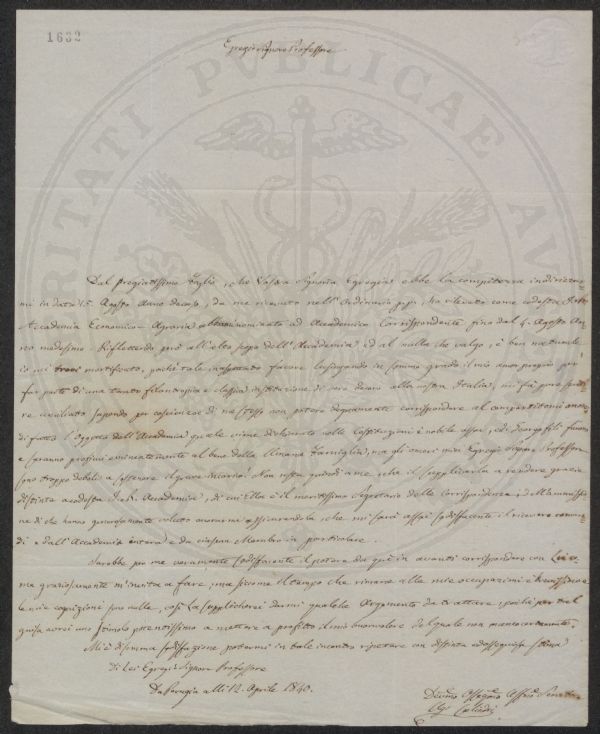 1632
Egregio Signore Professore
PUBLICAE
Dal pregiatissimo foglio, che Vostra Signoria Egregia ebbe la compitezza indirizzar-
mi in data 15. Agosto Anno decorso, da me ricevuto nell'Ordinario, ho rilevato come codesta
Accademia Economico-Agraria nominato ad Accademico Corrispondente fino dal 4. Agosto An-
no medesimo. Riflettendo però all'alto dell'Accademia ed al nulla che valgo, è ben naturale
io mi trovi mortificato, poichè tale inaspettato favore lusingando in sommo grado il mio amor proprio per
far parte di una tanto filantropica e classica institutione di vero decoro alla nostra Italia, mi fà pure
re avvilito sapendo per coscienza di me stesso non potere degnamente corrispondere al compartitomi onore
di fatto l'Oggetto dell'Accademia quale viene dichiarato nelle Costituzioni è nobile assai, ed i Georgofili furono
e saranno prossimi eminentemente al bene della Umana Famiglia, ma gli omeri miei Egregio Signor Professore
sono troppo deboli a sostenere il grave incarico! Non resta quindi a me che il supplicarla a rendere grazie
distinte a codesta I. e R. Accademia, di cui Ella è il meritissimo Segretario delle Corrispondenze, della
ne di che hanno generosamente voluto onorarmi assicurandola che mi sarei assai soddisfacente il ricevere coman-
di e dall'Accademia intera e da ciascun Membro in particolare.
Sarebbe per me veramente soddisfacente il potere da quì in avanti corrispondere con Lei co-
me graziosamente m'invita a fare, ma siccome il tempo che rimane alle mie occupazioni è brevissimo e
le mie cognizioni sono nulle, così La supplicherei darmi qualche Argomento da trattare, poichè per tal
guisa avrei uno stimolo potentissimo a mettere a profitto il mio buonvolere del quale non manco certamente.
Mi è di somma soddisfazione potermi in tale incontro ripetere con distinta ed ossequiosa stima
Di Lei Egregio Signore Professore
Da Perugia alli 12. Aprile 1840.